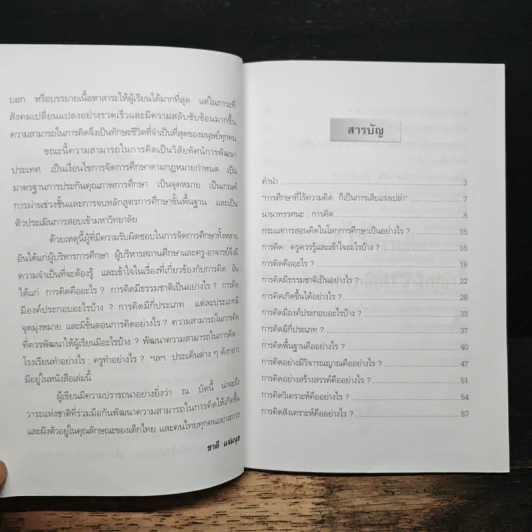 บอก หรือบรรยายเนื้อหาสาระให้ผู้เรียนได้มากที่สุด แต่ในภาวะที่
สังคมเปลี่ยนแปลงอย่างรวดเร็วและมีความสลับซับซ้อนมากขึ้น
ความสามารถในการคิดจึงเป็นทักษะชีวิตที่จำเป็นที่สุดของมนุษย์ทุกคน
ขณะนี้ความสามารถในการคิดเป็นวิสัยทัศน์การพัฒนา
ประเทศ เป็นเงื่อนไขการจัดการศึกษาตามกฎหมายกำหนด เป็น
มาตรฐานการประกันคุณภาพการศึกษา เป็นจุดหมาย เป็นเกณฑ์
การผ่านช่วงชั้นและการจบหลักสูตรการศึกษาขั้นพื้นฐาน และเป็น
ตัวประเมินการสอบเข้ามหาวิทยาลัย
ด้วยเหตุนี้ผู้ที่มีความรับผิดชอบในการจัดการศึกษาทั้งหลาย
อันได้แก่ ผู้บริหารการศึกษา ผู้บริหารสถานศึกษาและครู-อาจารย์จึงมี
ความจำเป็นที่จะต้องรู้ และเข้าใจในเรื่องที่เกี่ยวข้องกับการคิด อัน
ได้แก่ การคิดคืออะไร ? การคิดมีธรรมชาติเป็นอย่างไร ? การคิด
มีองค์ประกอบอะไรบ้าง ? การคิดมีกี่ประเภท แต่ละประเภทมี
จุดมุ่งหมาย และมีขั้นตอนการคิดอย่างไร ? ความสามารถในการคิด
ที่ควรพัฒนาให้ผู้เรียนมีอะไรบ้าง ? พัฒนาความสามารถในการคิด
โรงเรียนทำอย่างไร : ครูทำอย่างไร ? ฯลฯ ประเด็นต่าง ๆ ดังกล่าว
มีอยู่ในหนังสือเล่มนี้
ผู้เขียนมีความปรารถนาอย่างยิ่งว่า ณ บัดนี้ น่าจะถึง
วาระแห่งชาติที่ร่วมมือกันพัฒนาความสามารถในการคิดให้เกิดขึ้น
และฝังตัวอยู่ในคุณลักษณะของเด็กไทย และคนไทยทุกคนอย่างถาวร
ชาติ แจ่มนุช
สารบัญ
คำนำ 3
"การศึกษาที่ไร้ความคิด ก็เป็นการเสียแรงเปล่า" 7
นานาทรรศนะ : การคิด 8
กระแสการสอนคิดในโลกการศึกษาเป็นอย่างไร ? 15
การคิด : ครูควรรู้และเข้าใจอะไรบ้าง ? 16
การคิดคืออะไร ? 18
การคิดมีธรรมชาติเป็นอย่างไร ? 22
การคิดเกิดขึ้นได้อย่างไร ? 28
การคิดมีองค์ประกอบอะไรบ้าง ? 33
การคิดมีกี่ประเภท ? 37
การคิดพื้นฐานคืออย่างไร ? 40
การคิดอย่างมีวิจารณญาณคืออย่างไร ? 47
การคิดอย่างสร้างสรรค์คืออย่างไร ? 51
การคิดวิเคราะห์คืออย่างไร ? 54
การคิดสังเคราะห์คืออย่างไร ? 57